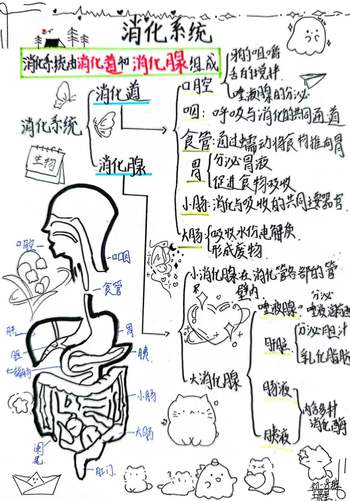 消化系统
消化系统由消化道和消化腺组成
消化系统
消化道
消化腺
生物
口腔
牙的咀嚼
舌的搅拌
唾液腺的分泌
咽：呼吸与消化的共同通道
食管：通过蠕动将食物推向胃
胃
分泌胃液
促进食物吸收
小肠：消化与吸收的共同主要器官
大肠
吸收水份电解质
形成废物
小消化腺在消化管各部的管壁内
大消化腺
唾液腺
分泌
唾液
肝脏
分泌胆汁
乳化脂肪
肠液
胰液
内含多种
消化酶
口腔
咽
食管
肝
胆
胃
胰
十二指肠
小肠
大肠
阑尾
肛门